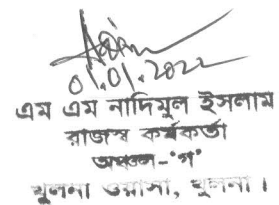 01.01.2022
এম এম নাদিমুল ইসলাম
রাজস্ব কর্মকর্তা
অঞ্চল-'গ'
খুলনা ওয়াসা, খুলনা।